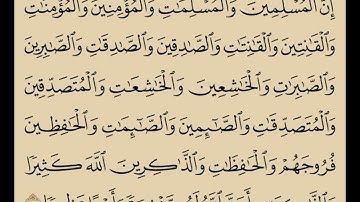 إِنَّ ٱلْمُسْلِمِينَ وَٱلْمُسْلِمَـٰتِ وَٱلْمُؤْمِنِينَ وَٱلْمُؤْمِنَـٰتِ
وَٱلْقَـٰنِتِينَ وَٱلْقَـٰنِتَـٰتِ وَٱلصَّـٰدِقِينَ وَٱلصَّـٰدِقَـٰتِ وَٱلصَّـٰبِرِينَ
وَٱلصَّـٰبِرَٰتِ وَٱلْخَـٰشِعِينَ وَٱلْخَـٰشِعَـٰتِ وَٱلْمُتَصَدِّقِينَ
وَٱلْمُتَصَدِّقَـٰتِ وَٱلصَّـٰٓئِمِينَ وَٱلصَّـٰٓئِمَـٰتِ وَٱلْحَـٰفِظِينَ
فُرُوجَهُمْ وَٱلْحَـٰفِظَـٰتِ وَٱلذَّٰكِرِينَ ٱللَّهَ كَثِيرًا